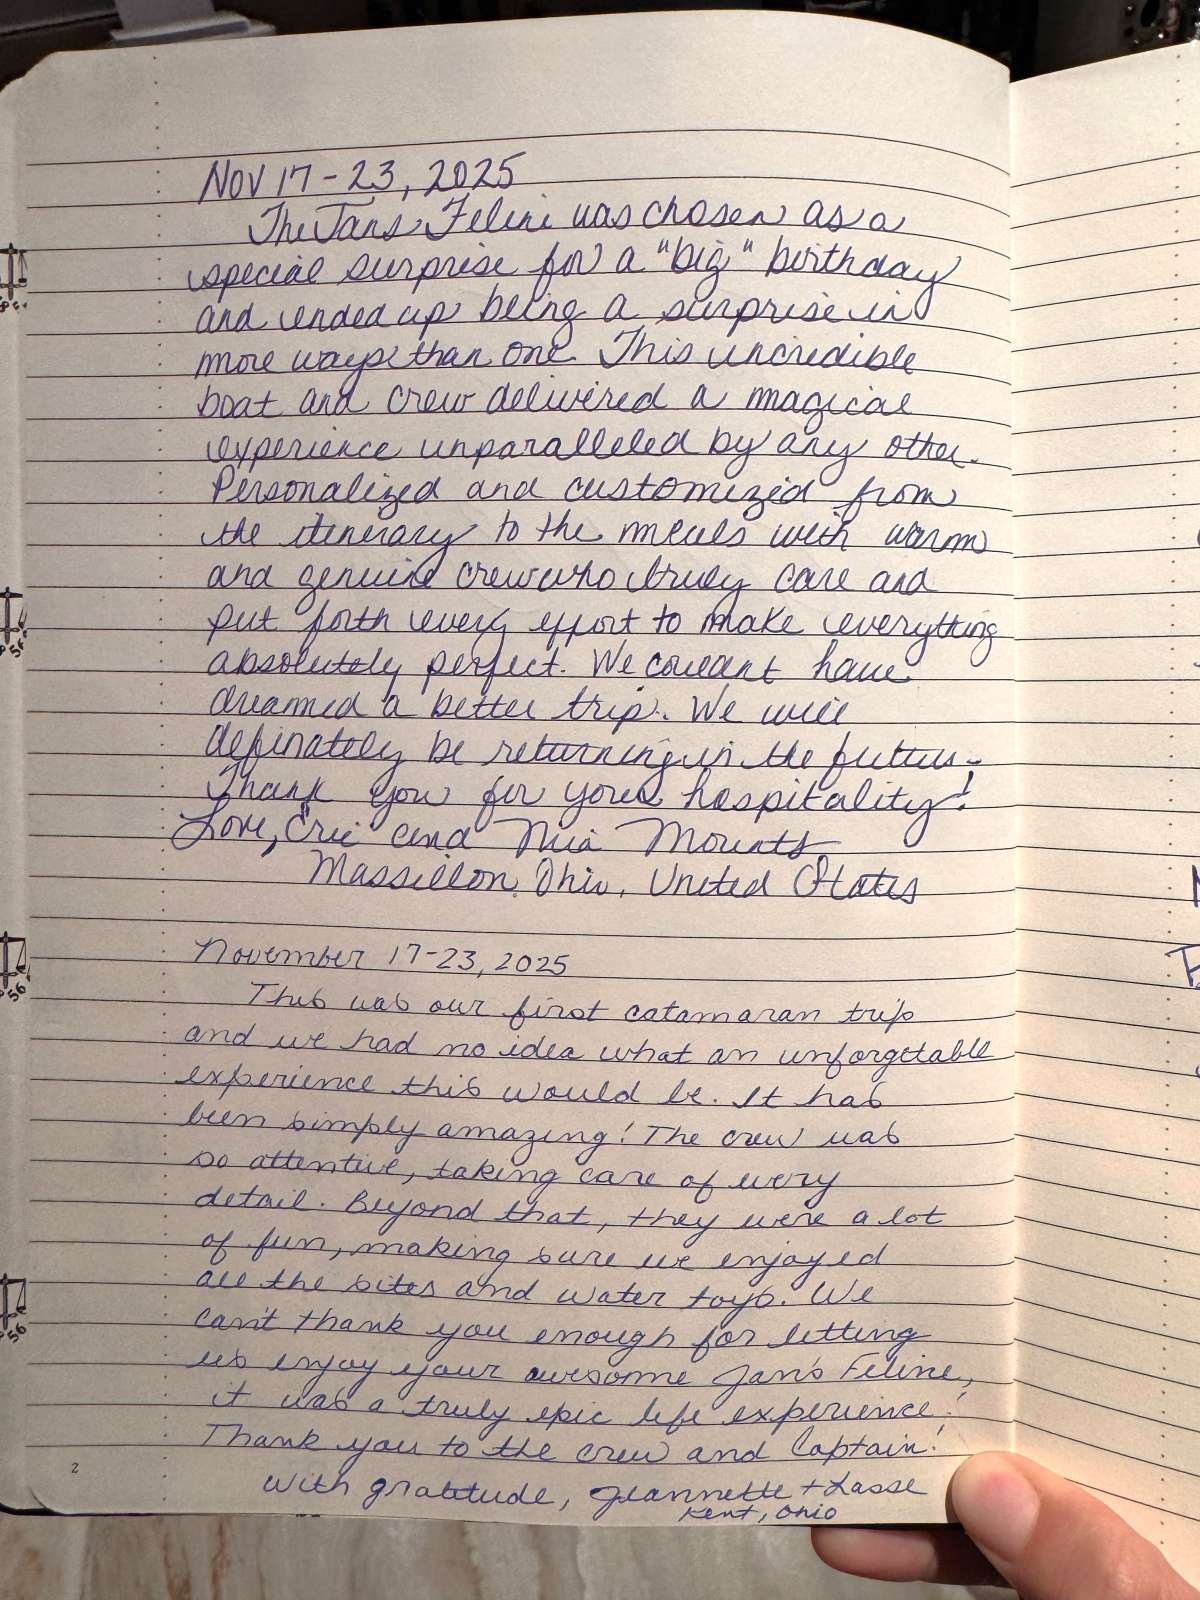 Nov 17-23, 2025
The Jans Feline was chosen as a
special surprise for a "big" birthday
and ended up being a surprise in
more ways than one. This incredible
boat and crew delivered a magical
experience unparalleled by any other.
Personalized and customized from
the itinerary to the meals with warm
and genuine crew who truly care and
put forth every effort to make everything
absolutely perfect. We couldnt have
dreamed a better trip. We will
definately be returning in the future.
Thank you for your hospitality!
Love, Eric and Mia Mounts
Massillon, Ohio, United States
November 17-23, 2025
This was our first catamaran trip
and we had no idea what an unforgetable
experience this would be. It has
been simply amazing! The crew was
so attentive, taking care of every
detail. Beyond that, they were a lot
of fun, making sure we enjoyed
all the sites and water toys. We
can't thank you enough for letting
us enjoy your awesome Jan's Feline,
it was a truly epic life experience!
Thank you to the crew and Captain!
With gratitude, Jeannette + Lasse
Kent, Ohio
2